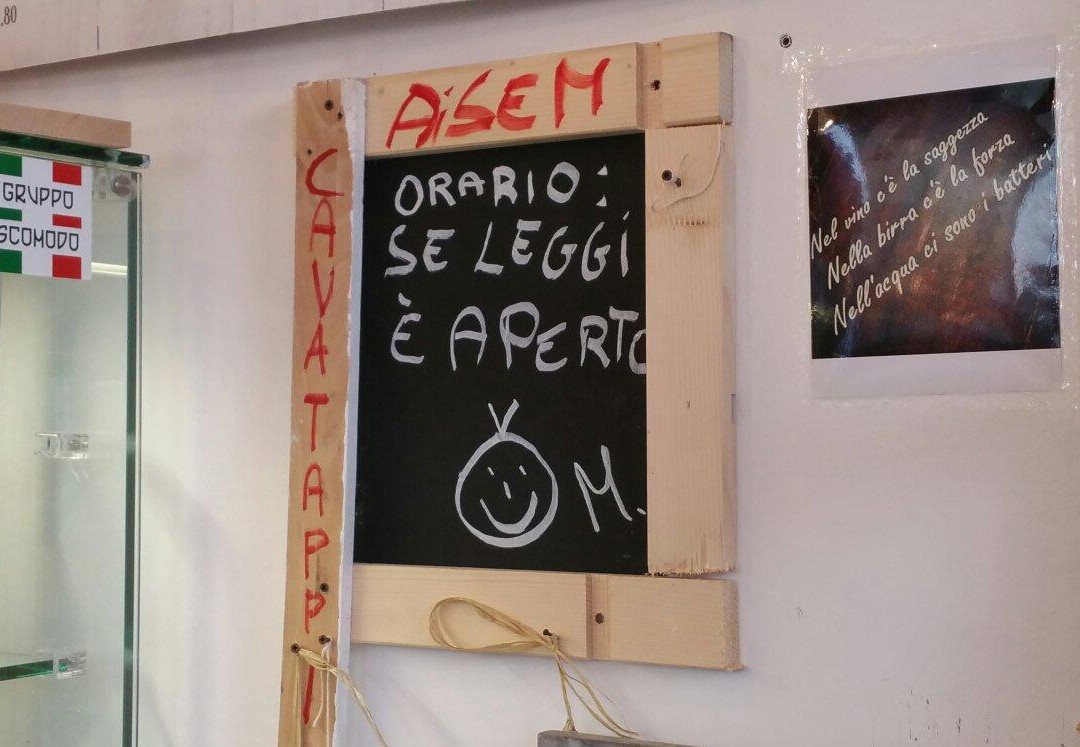 ,80
GRUPPO
SCOMODO
AiSEM
CAVATAPPI
ORARIO:
SE LEGGI
È APERTO
M.
Nel vino c'è la saggezza
Nella birra c'è la forza
Nell'acqua ci sono i batteri